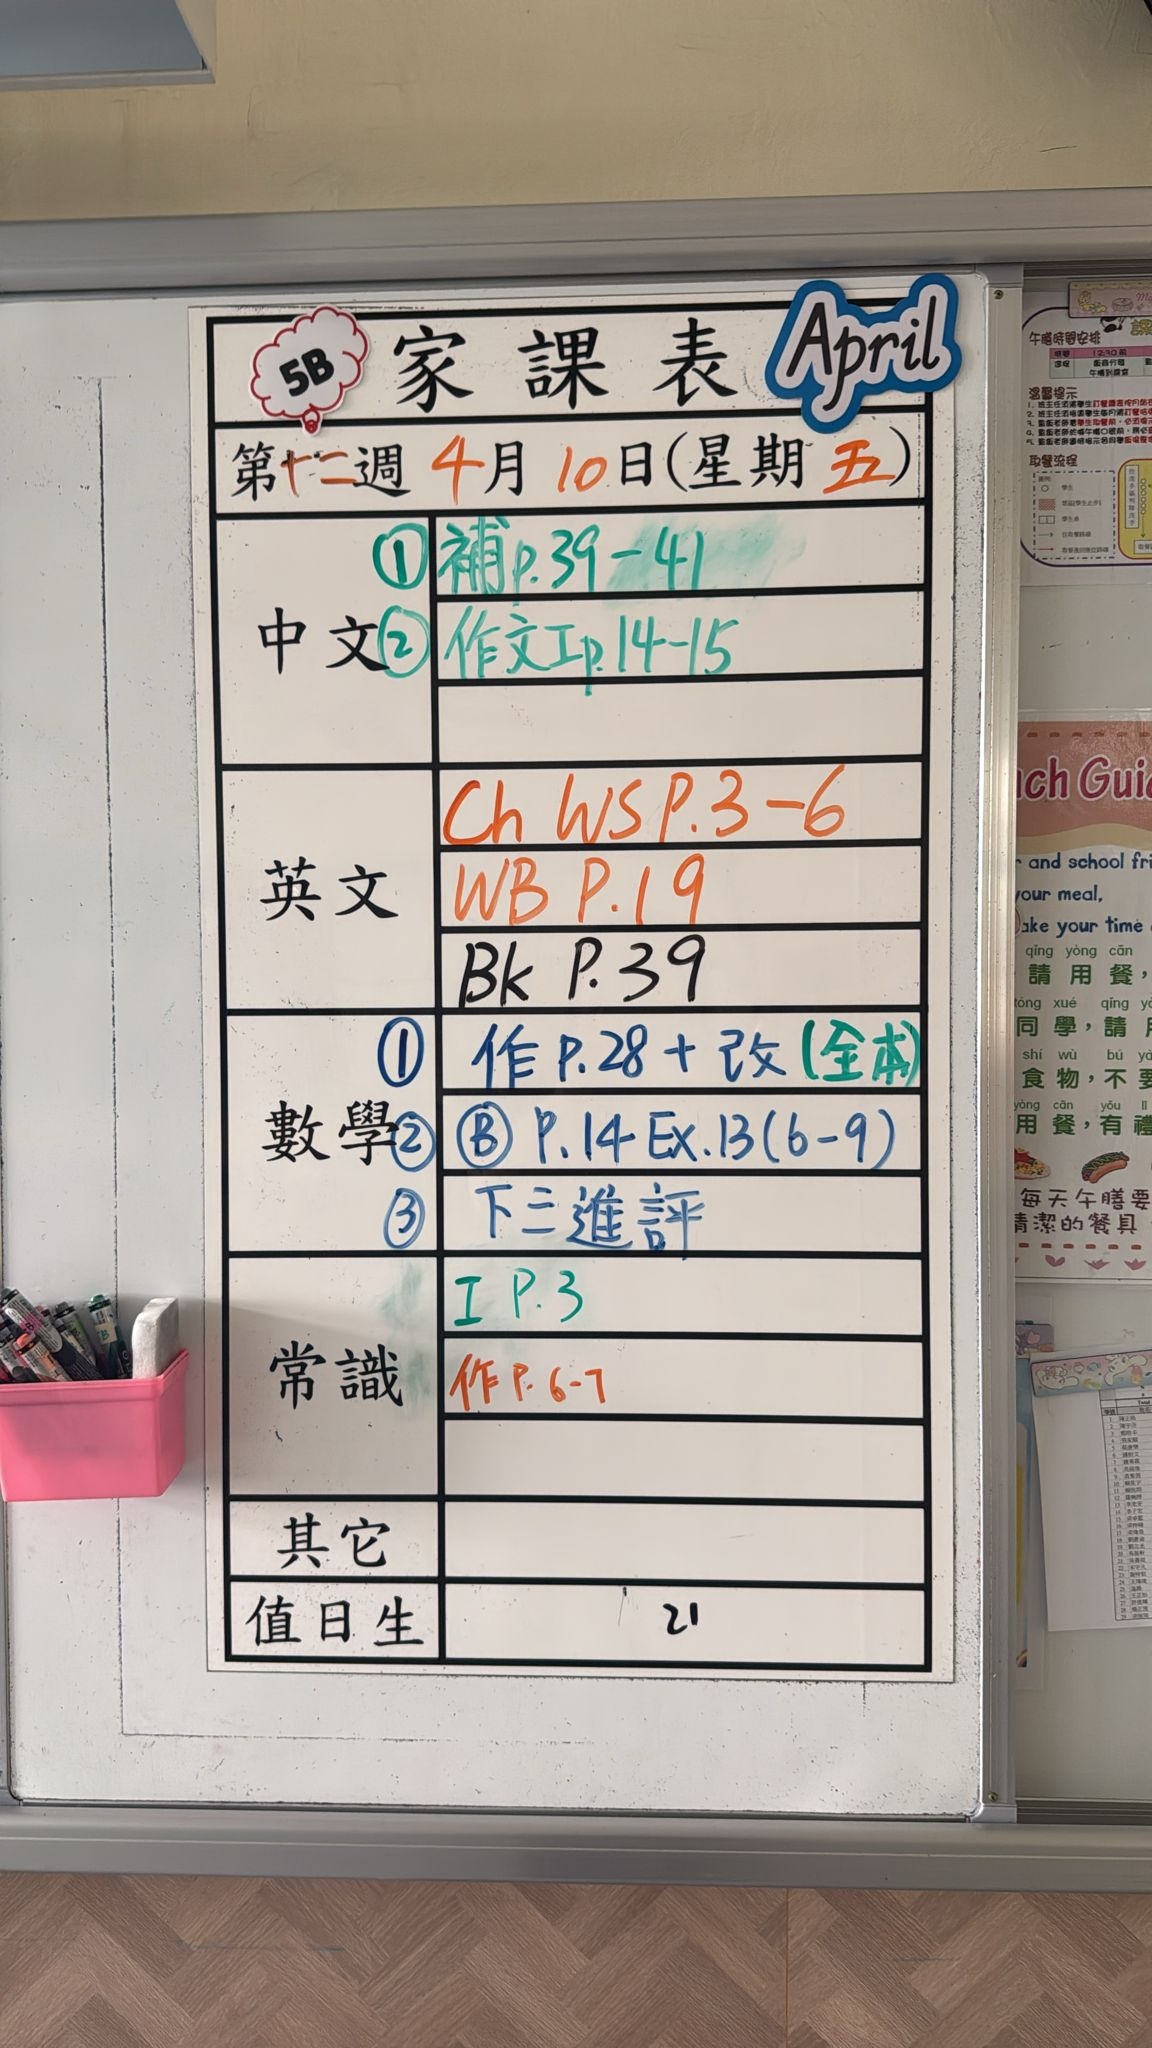 5B 家課表 April
第十二週 4月10日(星期五)
中文
① 補p.39-41
② 作文I p.14-15
英文
Ch WS P.3-6
WB P.19
Bk P.39
數學
① 作 P.28 + 改 (全本)
② Ⓑ P.14 Ex.13(6-9)
③ 下二進評
常識
I P.3
作 P. 6-7
其它
值日生 21
午膳時間安排
溫馨提示
取餐流程
and school fri
your meal,
ake your time
qǐng yòng cān
請用餐,
tóng xué qǐng
同學,請
shí wù bú
食物,不要
yòng cān yǒu
用餐,有禮
每天午膳要
清潔的餐具